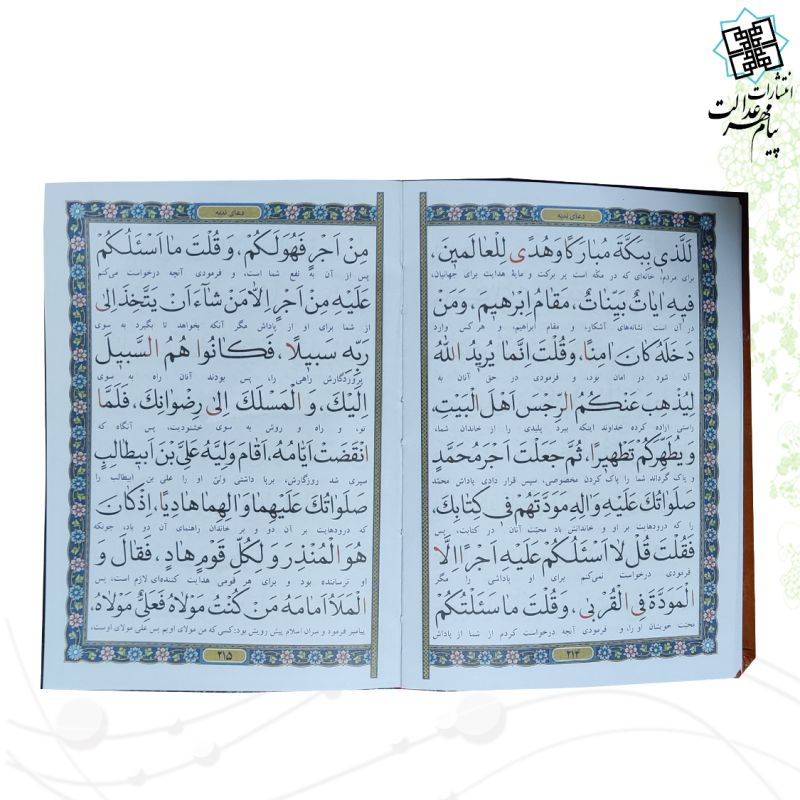 انتشارات
پیام مهر عدالت
دعای ندبه
لَلَّذی بِبَکَّةَ مُبارَکًا وَ هُدًی لِلْعالَمینَ،
برای مردم؛ خانه‌ای که در مکّه است پر برکت و مایهٔ هدایت برای جهانیان،
فیهِ ایاتٌ بَیِّناتٌ، مَقامُ اِبْرهیمَ، وَمَنْ
در آن است نشانه‌های آشکار، و مقام ابراهیم، و هر کس وارد
دَخَلَهُ کانَ امِنًا، وَقُلْتَ اِنَّما یُریدُ اللهُ
آن شود در امان بود، و فرمودی در حق آنان به
لِیُذْهِبَ عَنْکُمُ الرِّجْسَ اَهْلَ الْبَیْتِ،
راستی اراده کرده خداوند اینکه ببرد پلیدی را از خاندان شما،
وَ یُطَهِّرَکُمْ تَطْهیرًا، ثُمَّ جَعَلْتَ اَجْرَ مُحَمَّدٍ
و پاک گرداند شما را پاک کردن مخصوصی، سپس قرار دادی پاداش محمّد
صَلَواتُکَ عَلَیْهِ وَالِهِ مَوَدَّتَهُمْ فی کِتابِکَ،
را که درودهایت بر او و خاندانش باد محبّت آنان در کتابت، پس
فَقُلْتَ قُلْ لا اَسْئَلُکُمْ عَلَیْهِ اَجْرًا اِلَّا
فرمودی درخواست نمی‌کنم برای او پاداشی را مگر
الْمَوَدَّةَ فِی الْقُرْبی، وَقُلْتَ ما سَئَلْتُکُمْ
محبّت خویشان او را، و فرمودی آنچه درخواست کردم از شما از پاداش
۲۱۴
دعای ندبه
مِنْ اَجْرٍ فَهُوَلَکُمْ، وَ قُلْتَ ما اَسْئَلُکُمْ
پس از آن به نفع شما است، و فرمودی آنچه درخواست می‌کنم
عَلَیْهِ مِنْ اَجْرٍ اِلاّ مَنْ شآءَ اَنْ یَتَّخِذَ اِلی
از شما برای او از پاداش مگر آنکه بخواهد تا بگیرد به سوی
رَبِّه سَبیلًا، فَکانُوا هُمُ السَّبیلَ
پروردگارش راهی را، پس بودند آنان راه به سوی
اِلَیْکَ، وَ الْمَسْلَکَ اِلی رِضْوانِکَ، فَلَمَّا
تو، و راه و روش به سوی خشنودیت، پس آنگاه که
انْقَضَتْ اَیّامُهُ، اَقامَ وَلِیَّهُ عَلِیَّ بْنَ اَبیطالِبٍ
سپری شد روزگارش، برپا داشتی ولیّ او را علی بن ابیطالب را
صَلَواتُکَ عَلَیْهِما وَالِهِما هادِیًا، اِذْ کانَ
که درودهایت بر آن دو و بر خاندان راهنمای آن دو باد، چونکه
هُوَ الْمُنْذِرَ وَ لِکُلِّ قَوْمٍ هادٍ، فَقالَ وَ
او ترساننده بود و برای هر قومی هدایت کننده‌ای لازم است، پس
الْمَلَأُ اَمامَهُ مَنْ کُنْتُ مَوْلاهُ فَعَلِیٌّ مَوْلاهُ،
پیامبر فرمود و سران اسلام پیش رویش بود: کسی که من مولای اویم پس علی مولای اوست،
۲۱۵